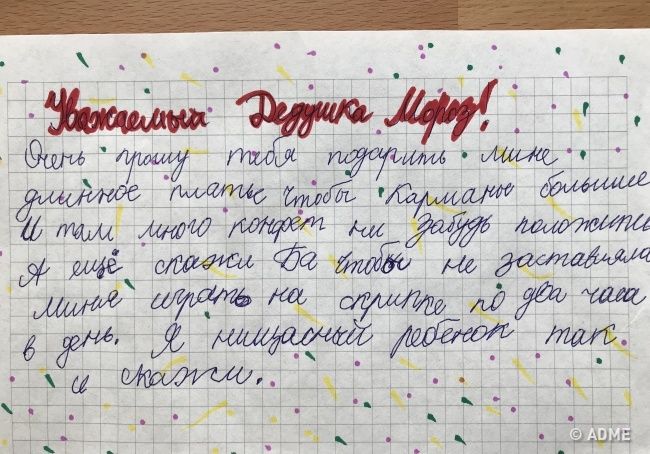 Уважаемый Дедушка Мороз!
Очень прошу тебя подарить мине
длинное платье чтобы Карманы большие
И там много конфет ни забудь положить
А ещё скажи Ба чтобы не заставляла
Миня играть на скрипке по два часа
в день. Я нищасный ребёнок так
и скажи.
© ADME